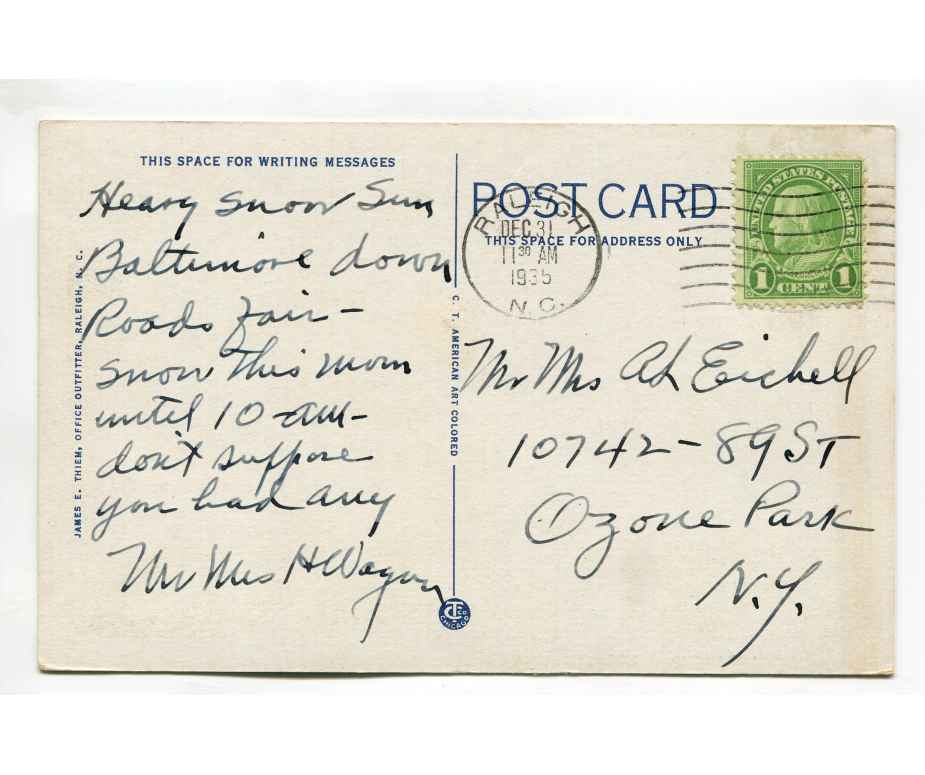 THIS SPACE FOR WRITING MESSAGES
Heavy snow Sun
Baltimore down
Roads Fair –
snow this morn
until 10 am –
don't suppose
you had any
Mr Mrs H Wagon
JAMES E. THIEM, OFFICE OUTFITTER, RALEIGH, N. C.
C. T. AMERICAN ART COLORED
CT CO
CHICAGO
POST CARD
THIS SPACE FOR ADDRESS ONLY
RALEIGH
DEC 31
11 30 AM
1935
N.C.
UNITED STATES POSTAGE
1 CENT 1
Mr Mrs AL Eichell
10742 – 89 ST
Ozone Park
N.Y.